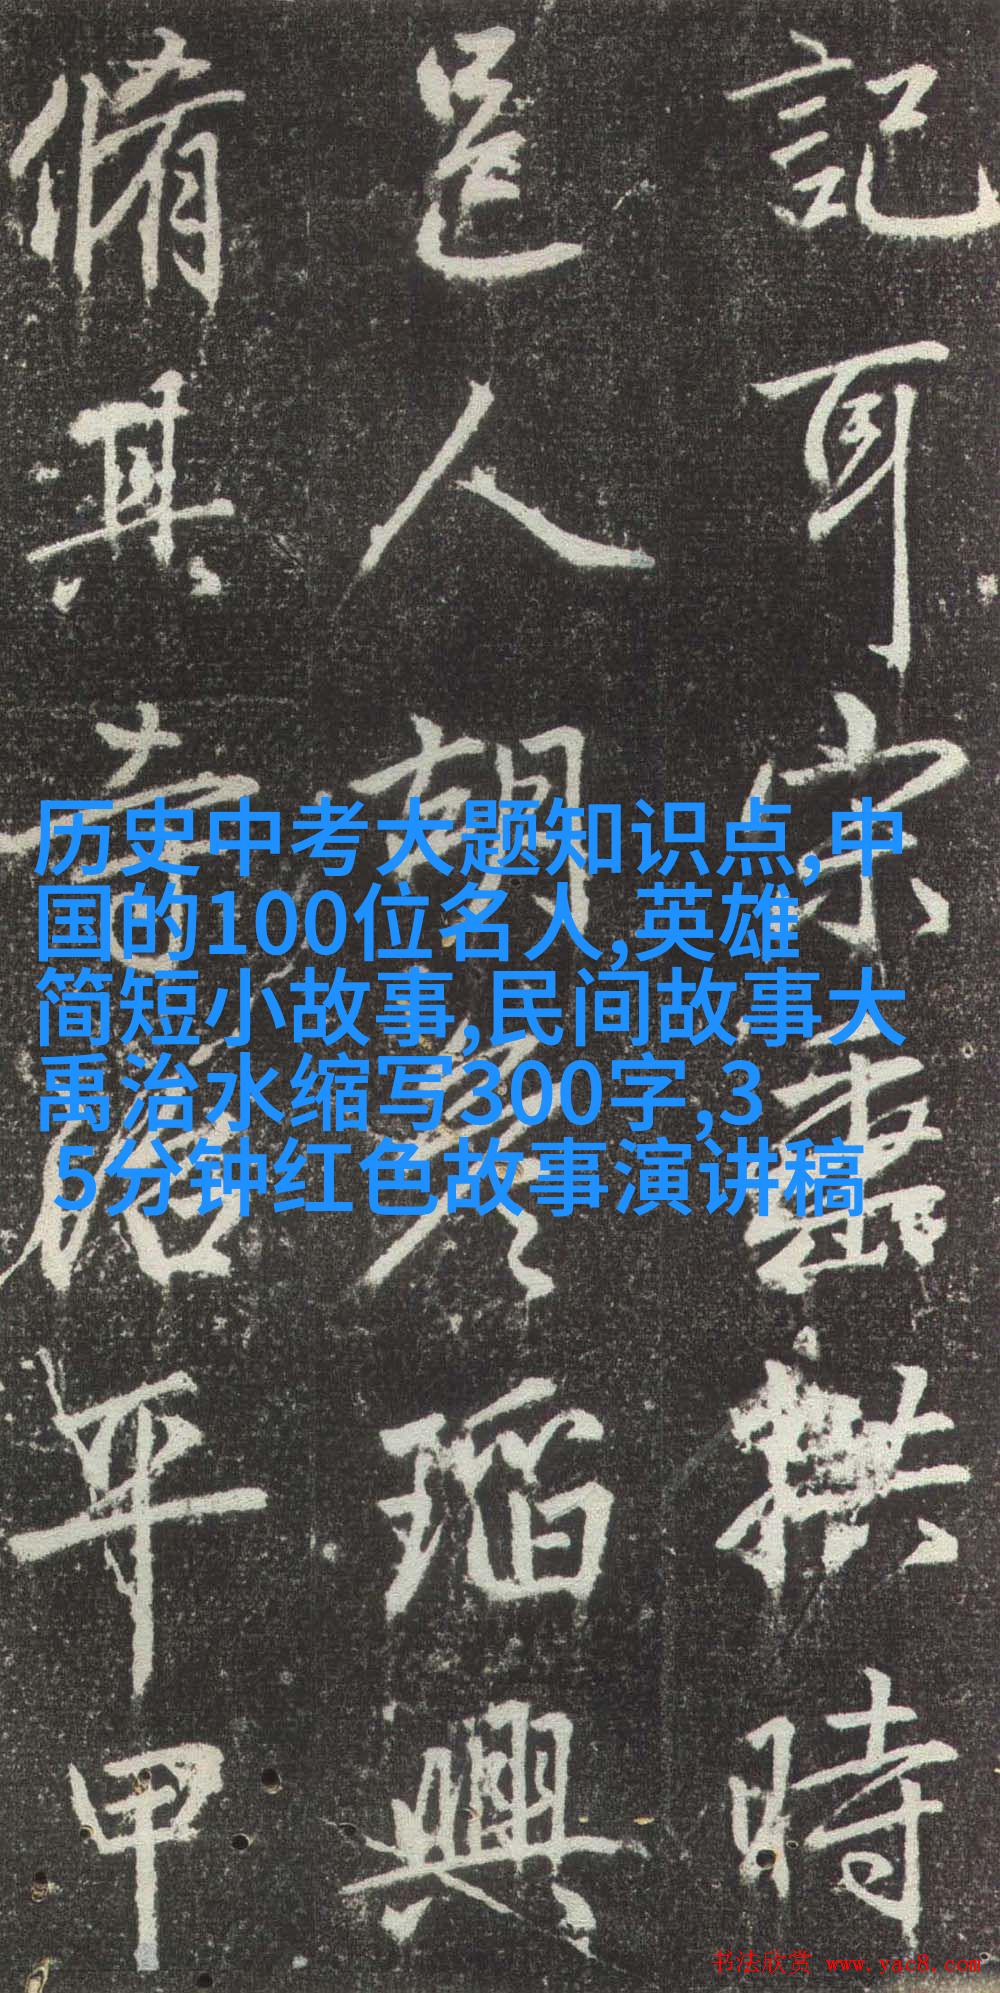 記耳宋臺拱時
邑人胡彦瑫興
脩其
平甲
历史中考大题知识点,中
国的100位名人,英雄
简短小故事,民间故事大
禹治水缩写300字,3
5分钟红色故事演讲稿
书法欣赏 www.yac8.com